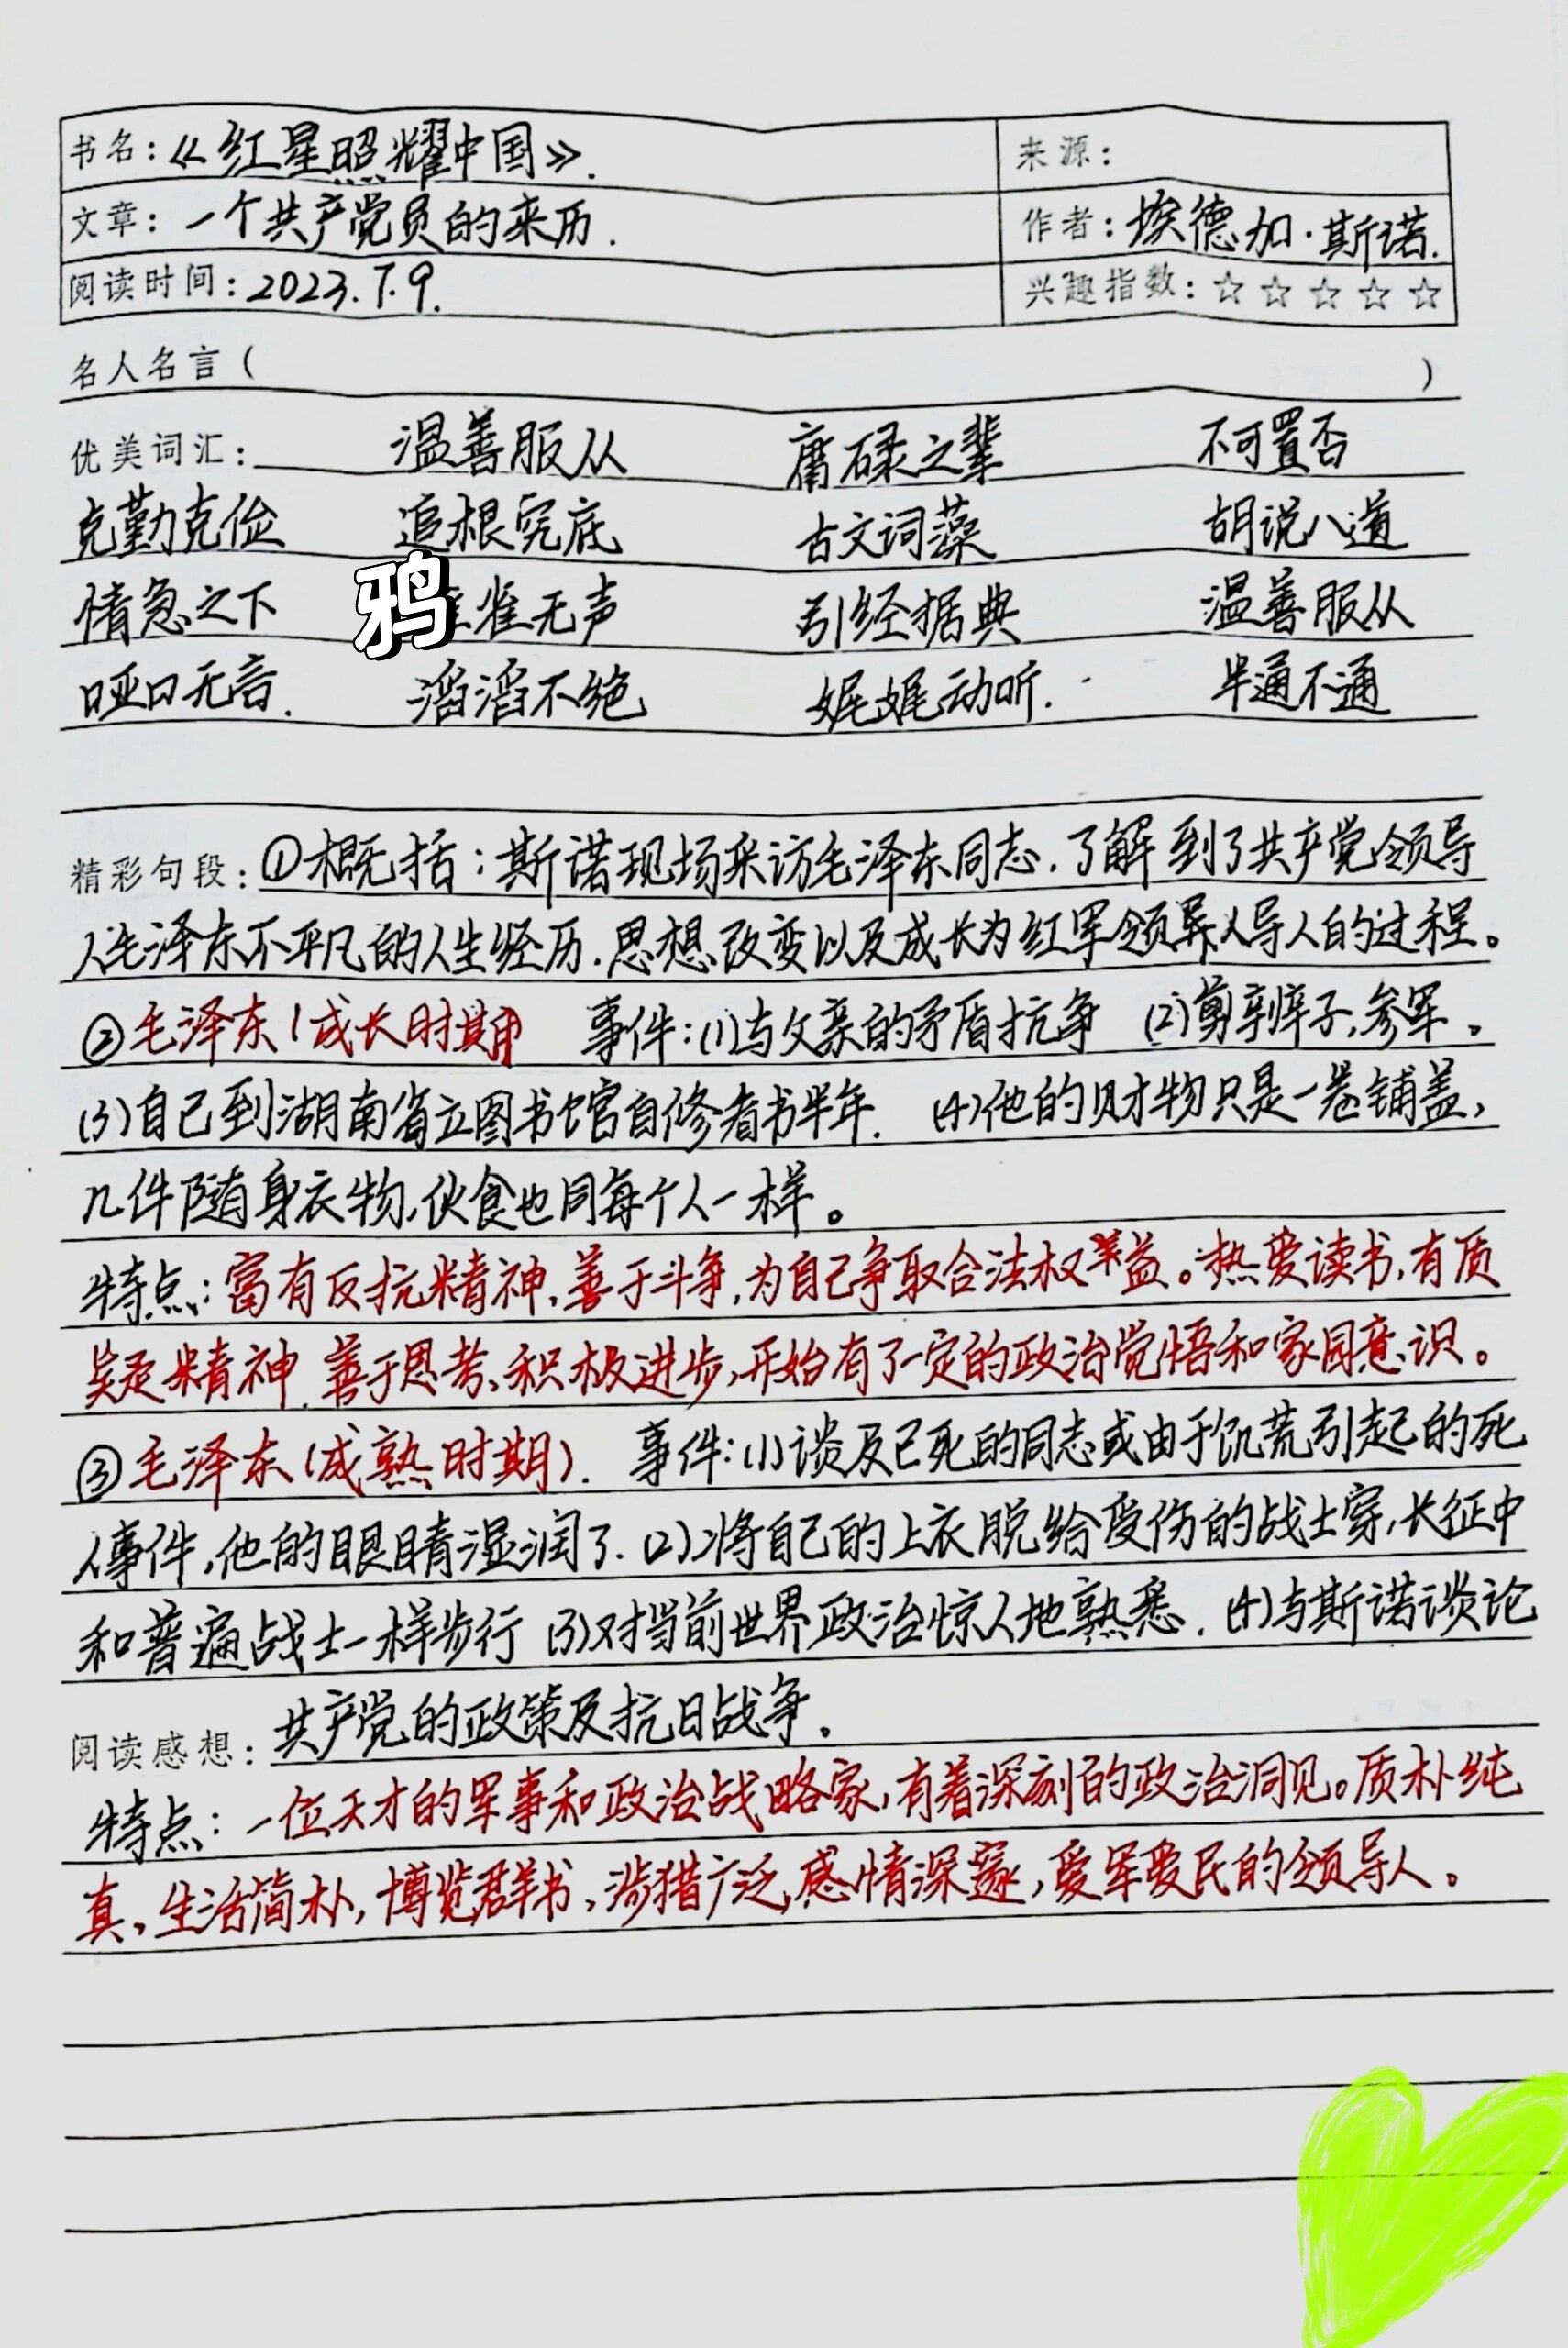 书名：《红星照耀中国》.
来源：
文章：一个共产党员的来历.
作者：埃德加·斯诺.
阅读时间：2023.7.9.
兴趣指数：☆☆☆☆☆
名人名言（ ）
优美词汇： 温善服从 庸碌之辈 不可置否
克勤克俭 追根究底 古文词藻 胡说八道
情急之下 鸦雀无声 引经据典 温善服从
哑口无言. 滔滔不绝 娓娓动听. 半通不通
精彩句段：①概括：斯诺现场采访毛泽东同志.了解到了共产党领导
人毛泽东不平凡的人生经历.思想改变以及成长为红军领导人的过程。
②毛泽东(成长时期) 事件：(1)与父亲的矛盾抗争 (2)剪辫子,参军。
(3)自己到湖南省立图书馆自修看书半年. (4)他的财物只是一卷铺盖,
几件随身衣物,伙食也同每个人一样。
特点：富有反抗精神、善于斗争,为自己争取合法权益。热爱读书,有质
疑精神、善于思考、积极进步,开始有了一定的政治觉悟和家国意识。
③毛泽东(成熟时期). 事件：(1)谈及已死的同志或由于饥荒引起的死
人事件,他的眼睛湿润了. (2)将自己的上衣脱给受伤的战士穿,长征中
和普遍战士一样步行 (3)对当前世界政治惊人地熟悉. (4)与斯诺谈论
阅读感想：共产党的政策及抗日战争。
特点：一位天才的军事和政治战略家,有着深刻的政治洞见。质朴纯
真、生活简朴,博览群书、涉猎广泛,感情深邃,爱军爱民的领导人。